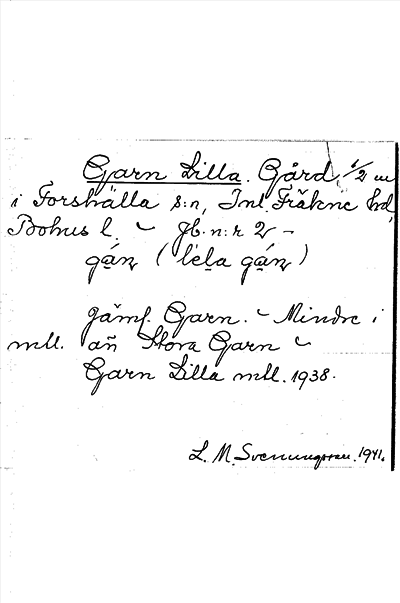 Garn Lilla. Gård, 1/2 m
i Forshälla s:n, Inl. Fräkne hd,
Bohus l. ~ Jb. n:r 2 -
gá̱n (lela gá̱n)
Jämf. Garn. ~ Mindre i
mtl. än Stora Garn ~
Garn Lilla mtl. 1938.
L. M. Svenungsson. 1941.